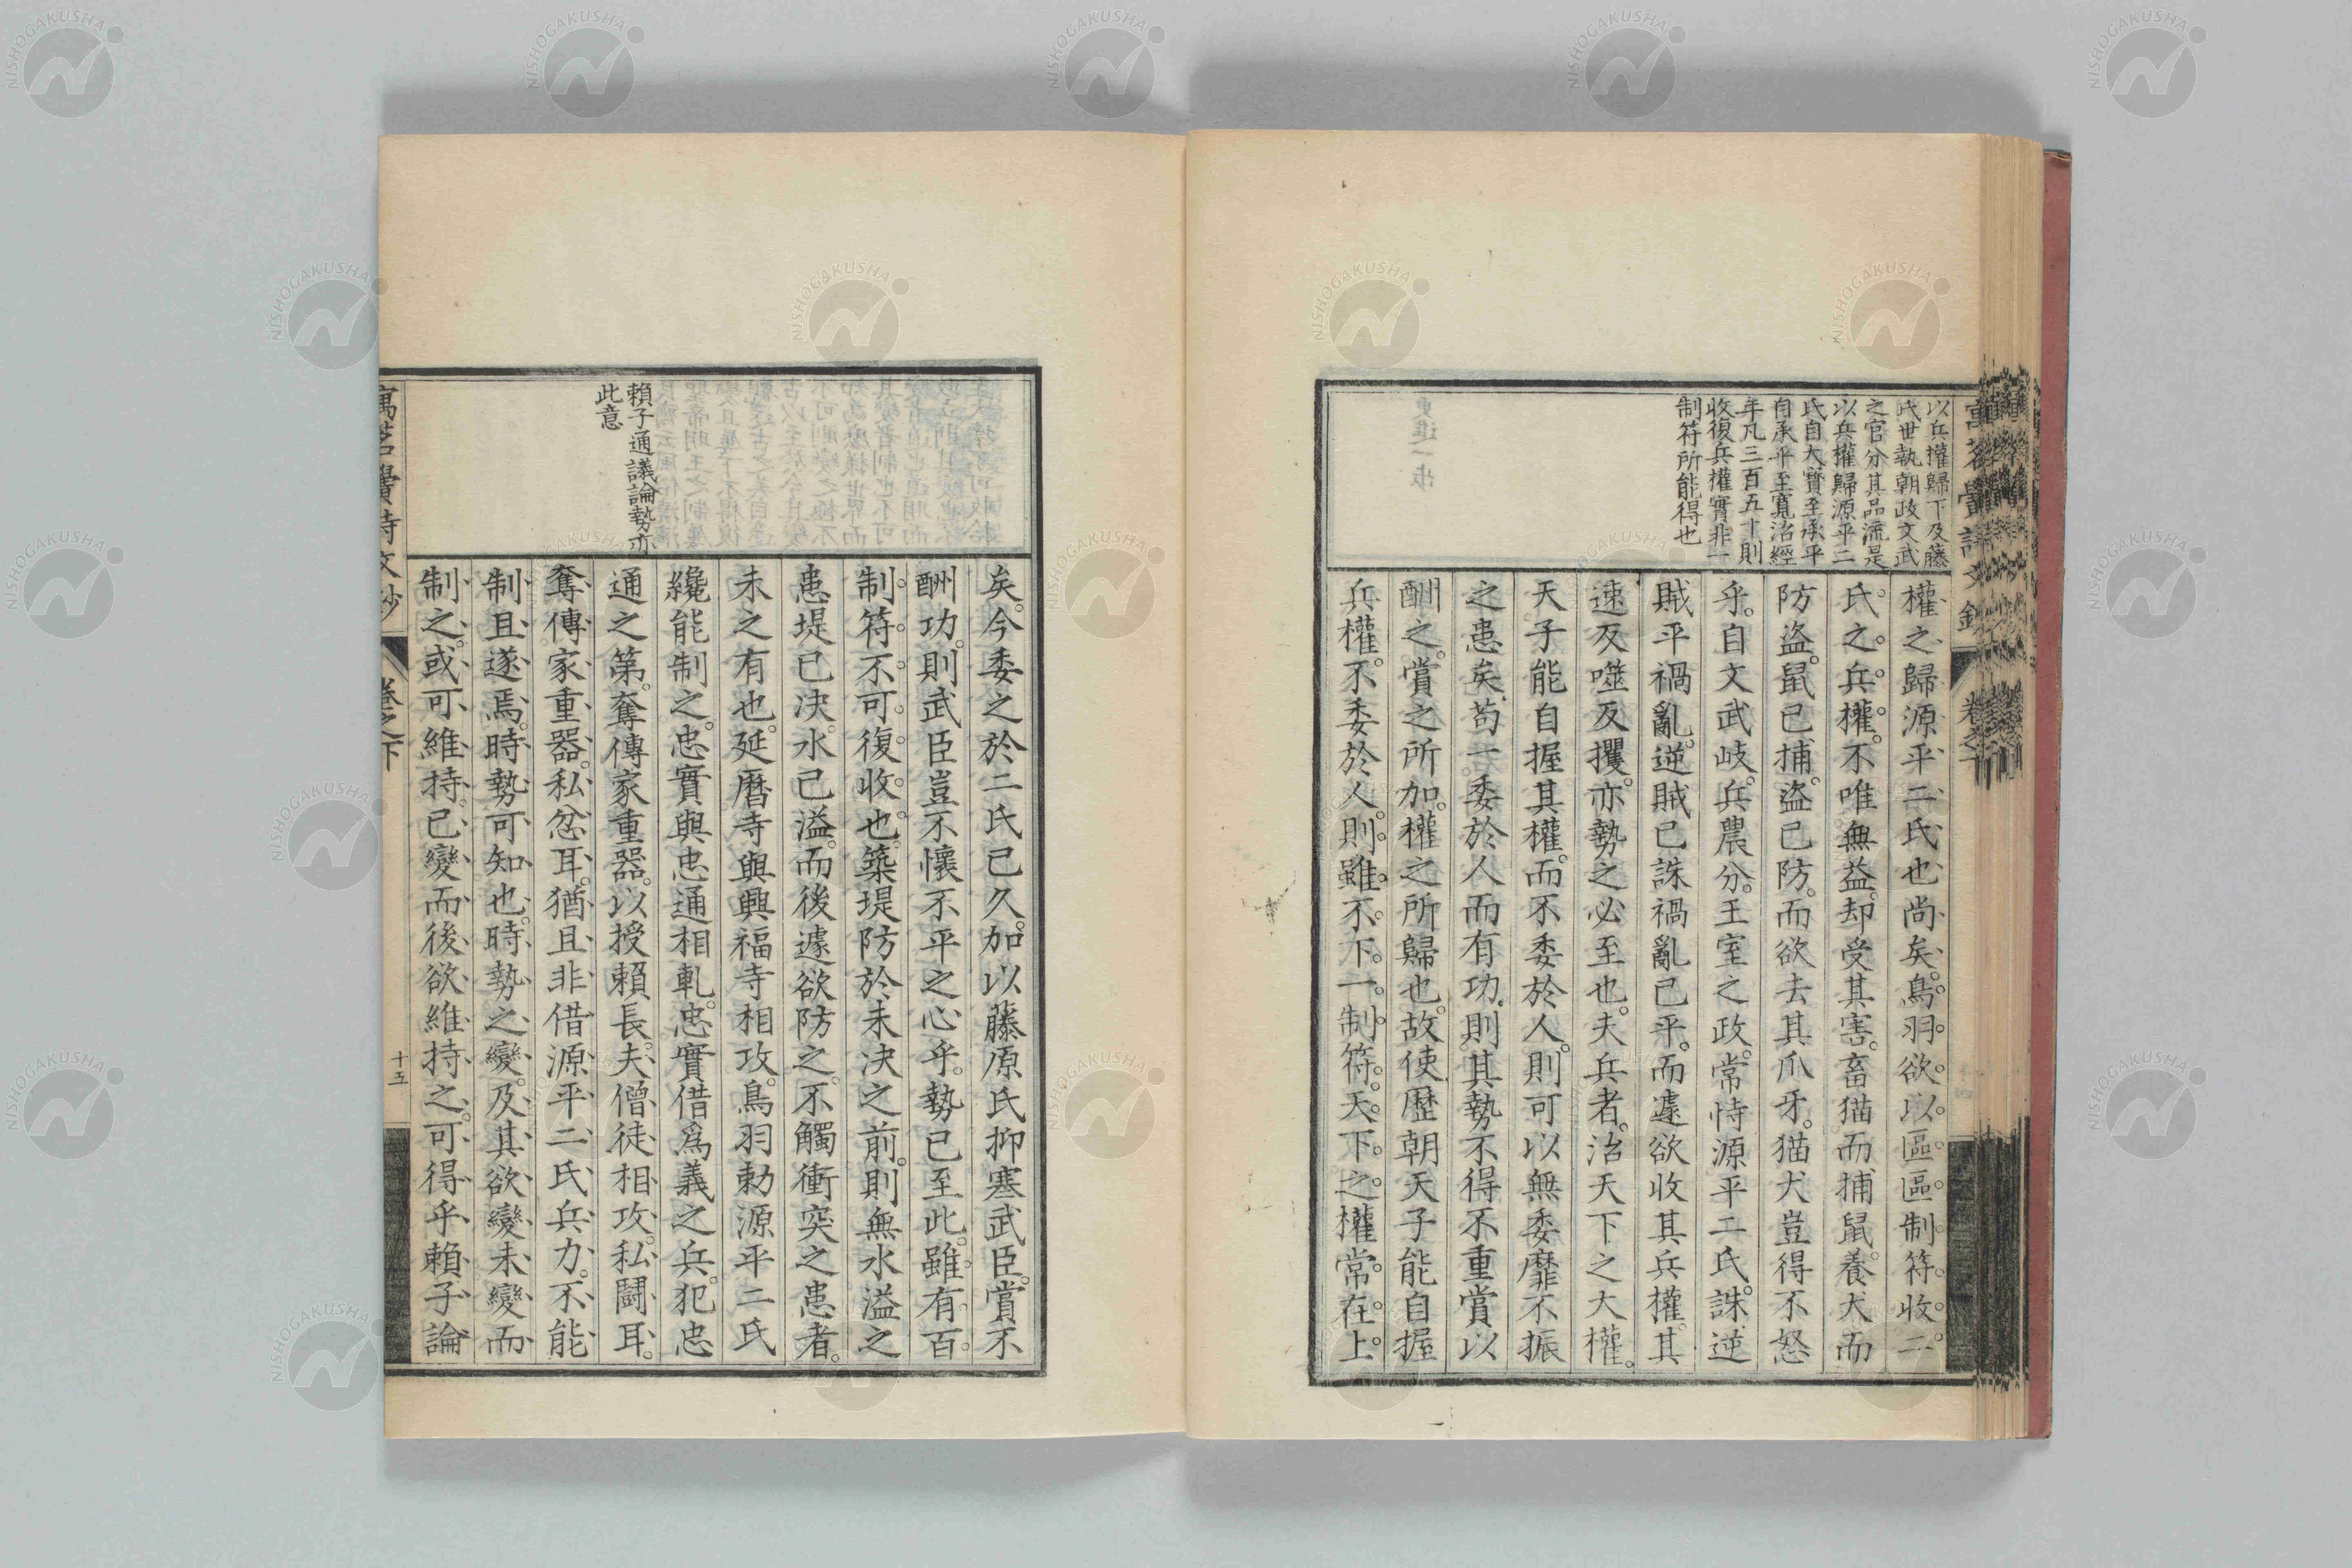 以兵權歸下及藤
氏世執朝政文武
之官分其品流是
以兵權歸源平二
氏自大寶至承平
自承平至寬治經
年凡三百五十則
收復兵權實非一
制符所能得也
權之歸源平二氏也尚矣鳥羽欲以區區制符收二
氏之兵權不唯無益却受其害畜猫而捕鼠養犬而
防盜鼠已捕盜已防而欲去其爪牙猫犬豈得不怒
乎自文武岐兵農分王室之政常恃源平二氏誅逆
賊平禍亂逆賊已誅禍亂已平而遽欲收其兵權其
速反噬反攫亦勢之必至也夫兵者治天下之大權
天子能自握其權而不委於人則可以無委靡不振
之患矣苟一委於人而有功則其勢不得不重賞以
酬之賞之所加權之所歸也故使歷朝天子能自握
兵權不委於人則雖不下一制符天下之權常在上
賴子通議論勢亦
此意
矣今委之於二氏已久加以藤原氏抑塞武臣賞不
酬功則武臣豈不懷不平之心乎勢已至此雖有百
制符不可復收也築堤防於未決之前則無水溢之
患堤已決水已溢而後遽欲防之不觸衝突之患者
未之有也延曆寺與興福寺相攻鳥羽勅源平二氏
纔能制之忠實與忠通相軋忠實借爲義之兵犯忠
通之第奪傳家重器以授賴長夫僧徒相攻私鬪耳
奪傳家重器私忿耳猶且非借源平二氏兵力不能
制且遂焉時勢可知也時勢之變及其欲變未變而
制之或可維持已變而後欲維持之可得乎賴子論
卷之下
十五
NISHOGAKUSHA